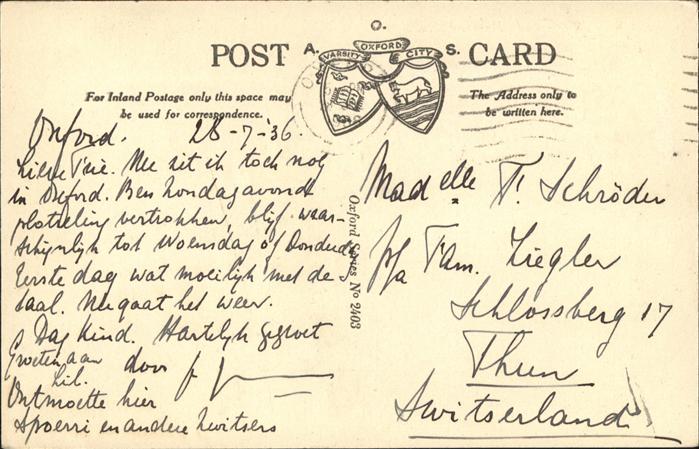 O.
A. S.
VARSITY OXFORD CITY
POST CARD
For Inland Postage only this space may
be used for correspondence.
The Address only to
be written here.
Oxford. 28-7-'36.
Nu zit ik toch nog
in Oxford. Ben Zondagavond
plotseling vertrokken, blijf waar-
schijnlijk tot Woensdag of Donderd.
Eerste dag wat moeilijk met de
taal. Nu gaat het weer.
Dag kind. Hartelijk gegroet
door
Groeten aan
Ontmoette hier
Spoerri en andere Zwitsers
Oxford Series No 2403
Mad elle T. Schröder
p/a Fam. Ziegler
Schlossberg 17
Thun
Switserland